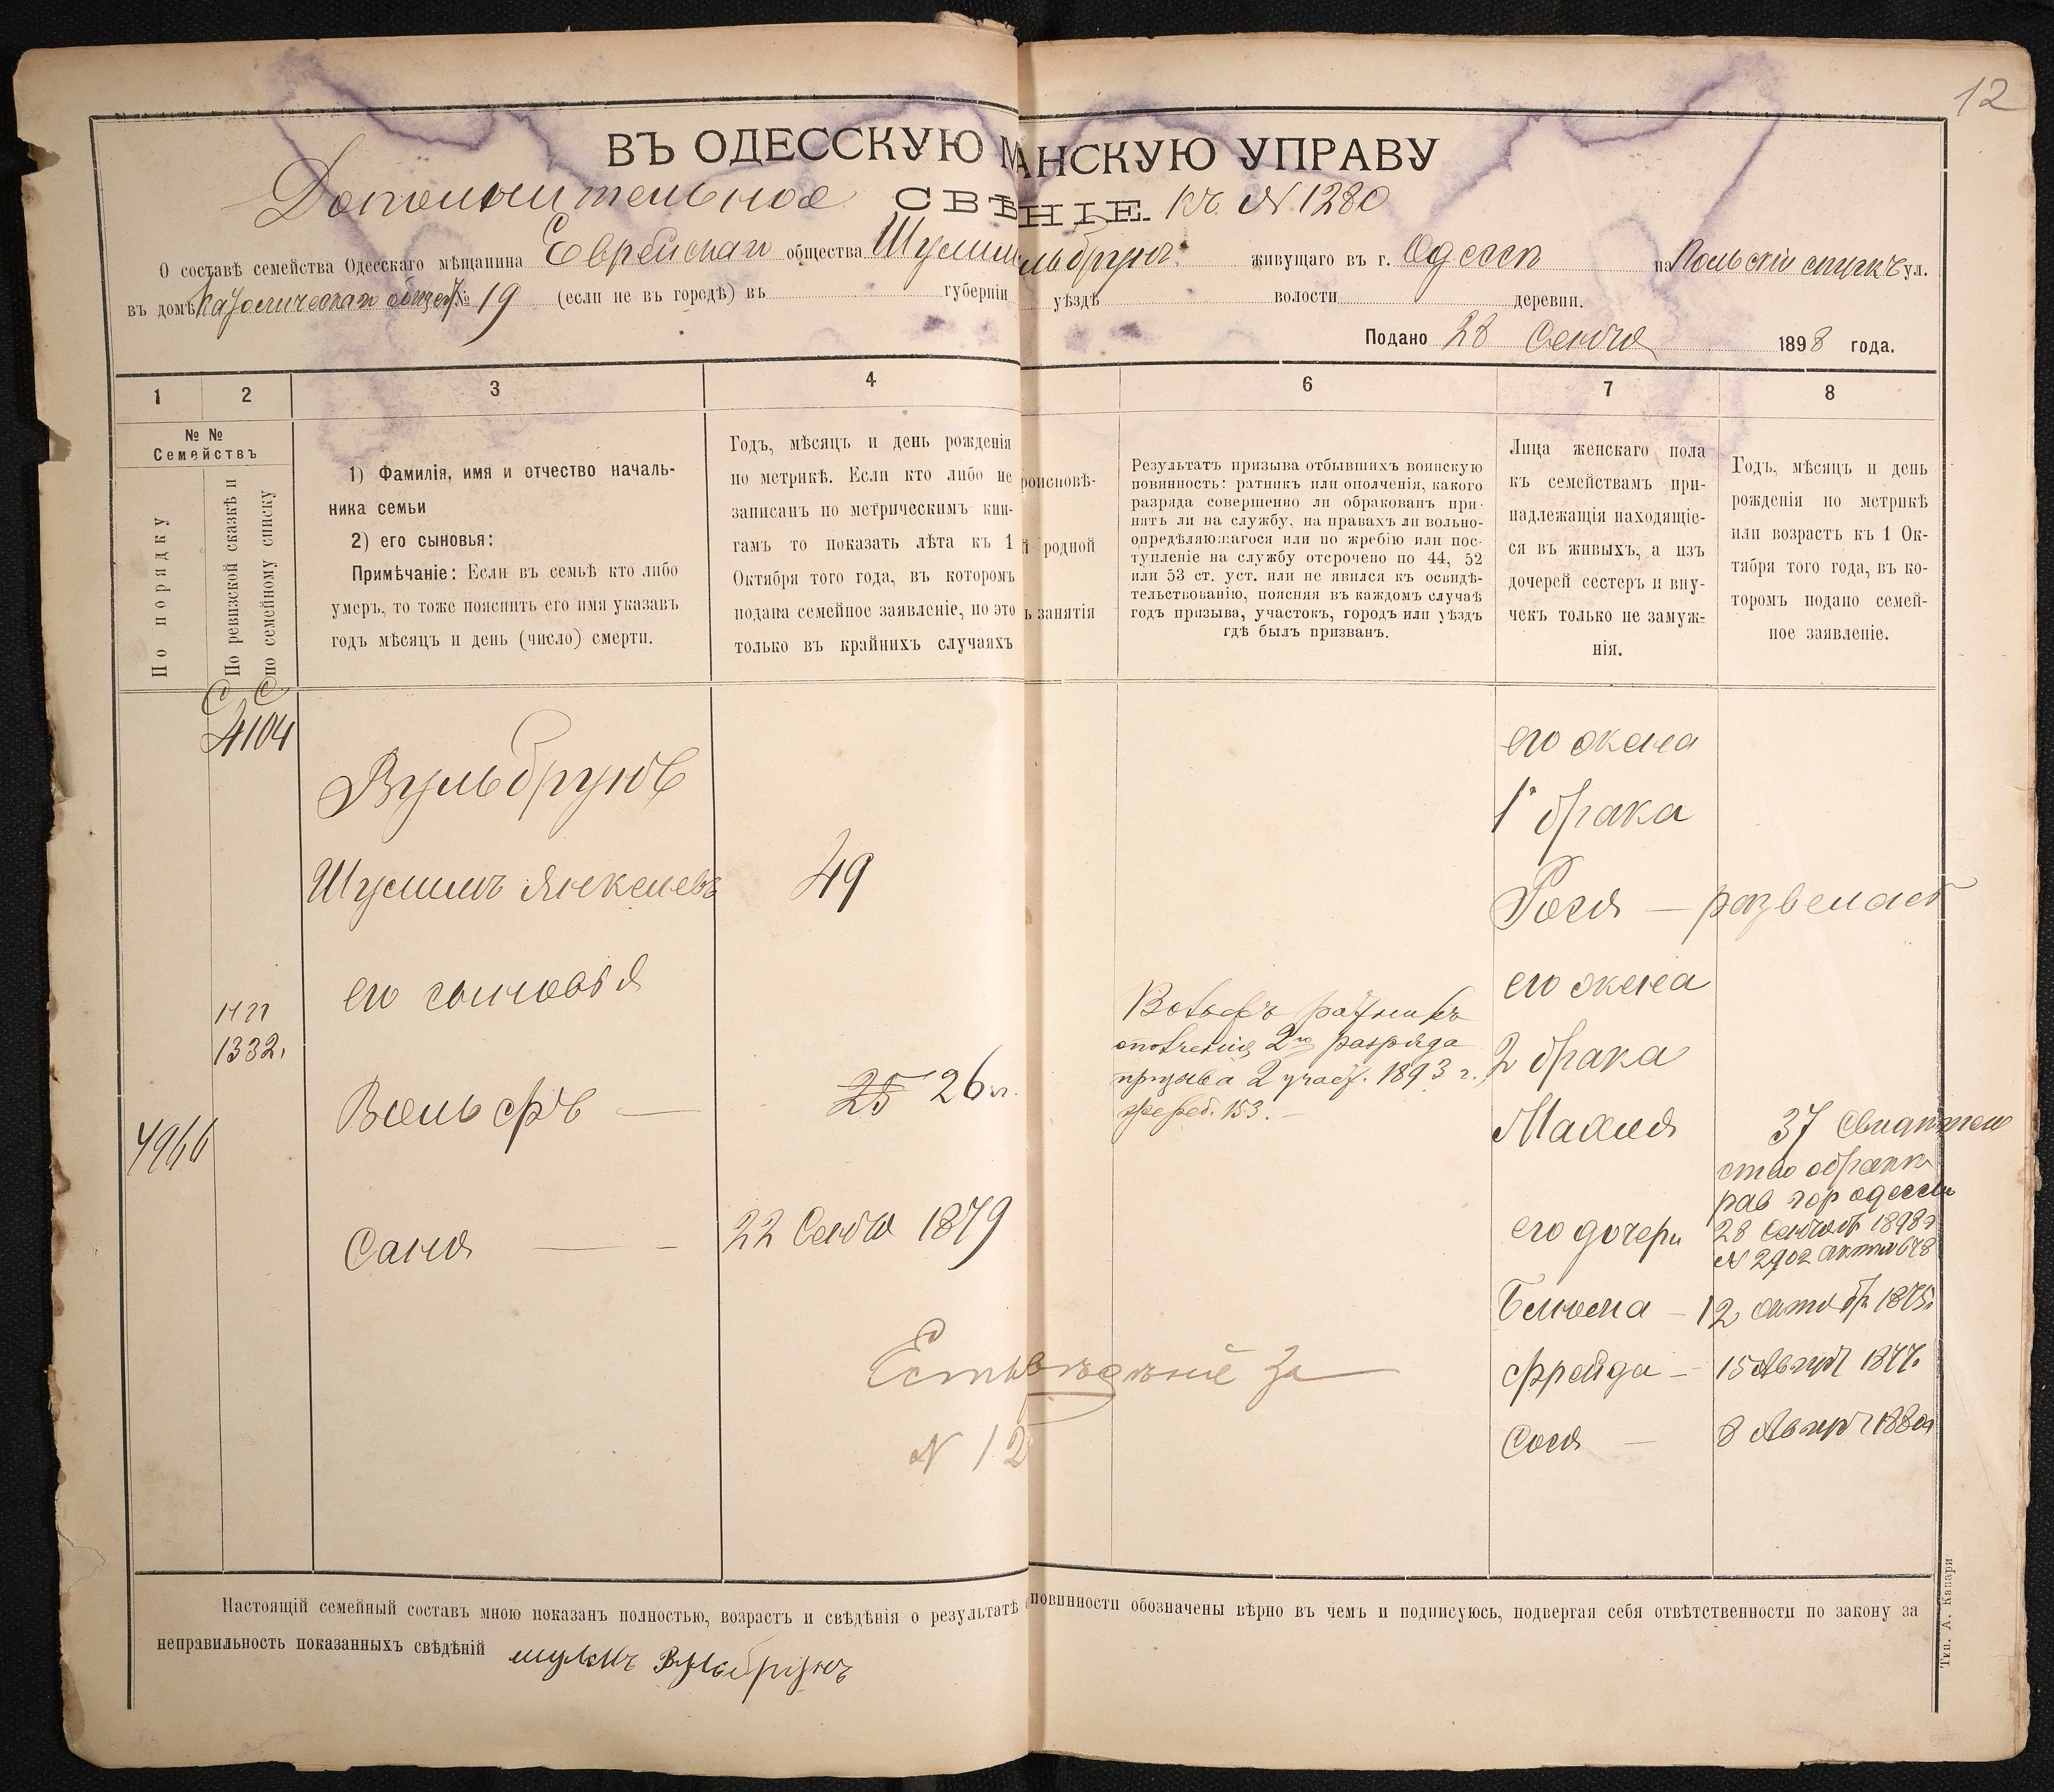 12
ВЪ ОДЕССКУЮ М АНСКУЮ УПРАВУ
Дополнительное СВѢ НІЕ. къ № 1280
О составѣ семейства Одесскаго мѣщанина Еврейскаго общества Шулим льбрунъ живущаго въ г. Одессѣ на Польскій спускъ ул.
въ домѣ Католическаго общест № 19 (если не въ городѣ) въ губерніи уѣздѣ волости деревни.
Подано 28 Сентбя 1898 года.
1 2 3 4 6 7 8
№ №
Семействъ
По порядку
По ревизской сказкѣ и
по семейному списку
1) Фамилія, имя и отчество началь-
ника семьи
2) его сыновья:
Примѣчаніе: Если въ семьѣ кто либо
умеръ, то тоже пояснить его имя указавъ
годъ мѣсяцъ и день (число) смерти.
Годъ, мѣсяцъ и день рожденія
по метрикѣ. Если кто либо не
записанъ по метрическимъ кни-
гамъ то показать лѣта къ 1
Октября того года, въ которомъ
подана семейное заявленіе, но это
только въ крайнихъ случаяхъ
роисповѣ-
й родной
ъ занятія
Результатъ призыва отбывшихъ воинскую
повинность: ратникъ или ополченія, какого
разряда совершенно ли обракованъ при-
нятъ ли на службу, на правахъ ли вольно-
опредѣляющагося или по жребію или пос-
тупленіе на службу отсрочено по 44, 52
или 53 ст. уст. или не явился къ освидѣ-
тельствованію, поясняя въ каждомъ случаѣ
годъ призыва, участокъ, городъ или уѣздъ
гдѣ былъ призванъ.
Лица женскаго пола
къ семействамъ при-
надлежащія находящіе-
ся въ живыхъ, а изъ
дочерей сестеръ и вну-
чекъ только не замуж-
нія.
Годъ, мѣсяцъ и день
рожденія по метрикѣ
или возрастъ къ 1 Ок-
тября того года, въ ко-
торомъ подано семей-
ное заявленіе.
С С
4104
Вульбрунъ
Шулимъ Янкелевъ 49
его сыновья
1332.
Вольфъ — 25 26 л.
4966
Саня — - 22 Сентбя 1879
Вольфъ ратникъ
ополченія 2го разряда
призыва 2 участ. 1893 г.
жереб. 153. —
его жена
1го брака
Рося — развелась
его жена
2 брака
Махля 37 Свидѣтель
ство о бракѣ
рав гор одессы
28 Сентяб 1898 г
№ 2902 актъ 678
его дочери
Бениема — 12 октябр 1875 г
Фрейда — 15 Август 1877 г
Сося — 8 Август 1880 г
Есть свѣдѣніе за —
№ 12
Настоящій семейный составъ мною показанъ полностью, возрастъ и свѣдѣнія о результатѣ повинности обозначены вѣрно въ чемъ и подписуюсь, подвергая себя отвѣтственности по закону за
неправильность показанныхъ свѣдѣній Шулимъ Вульбрунъ
Тип. А. Капари